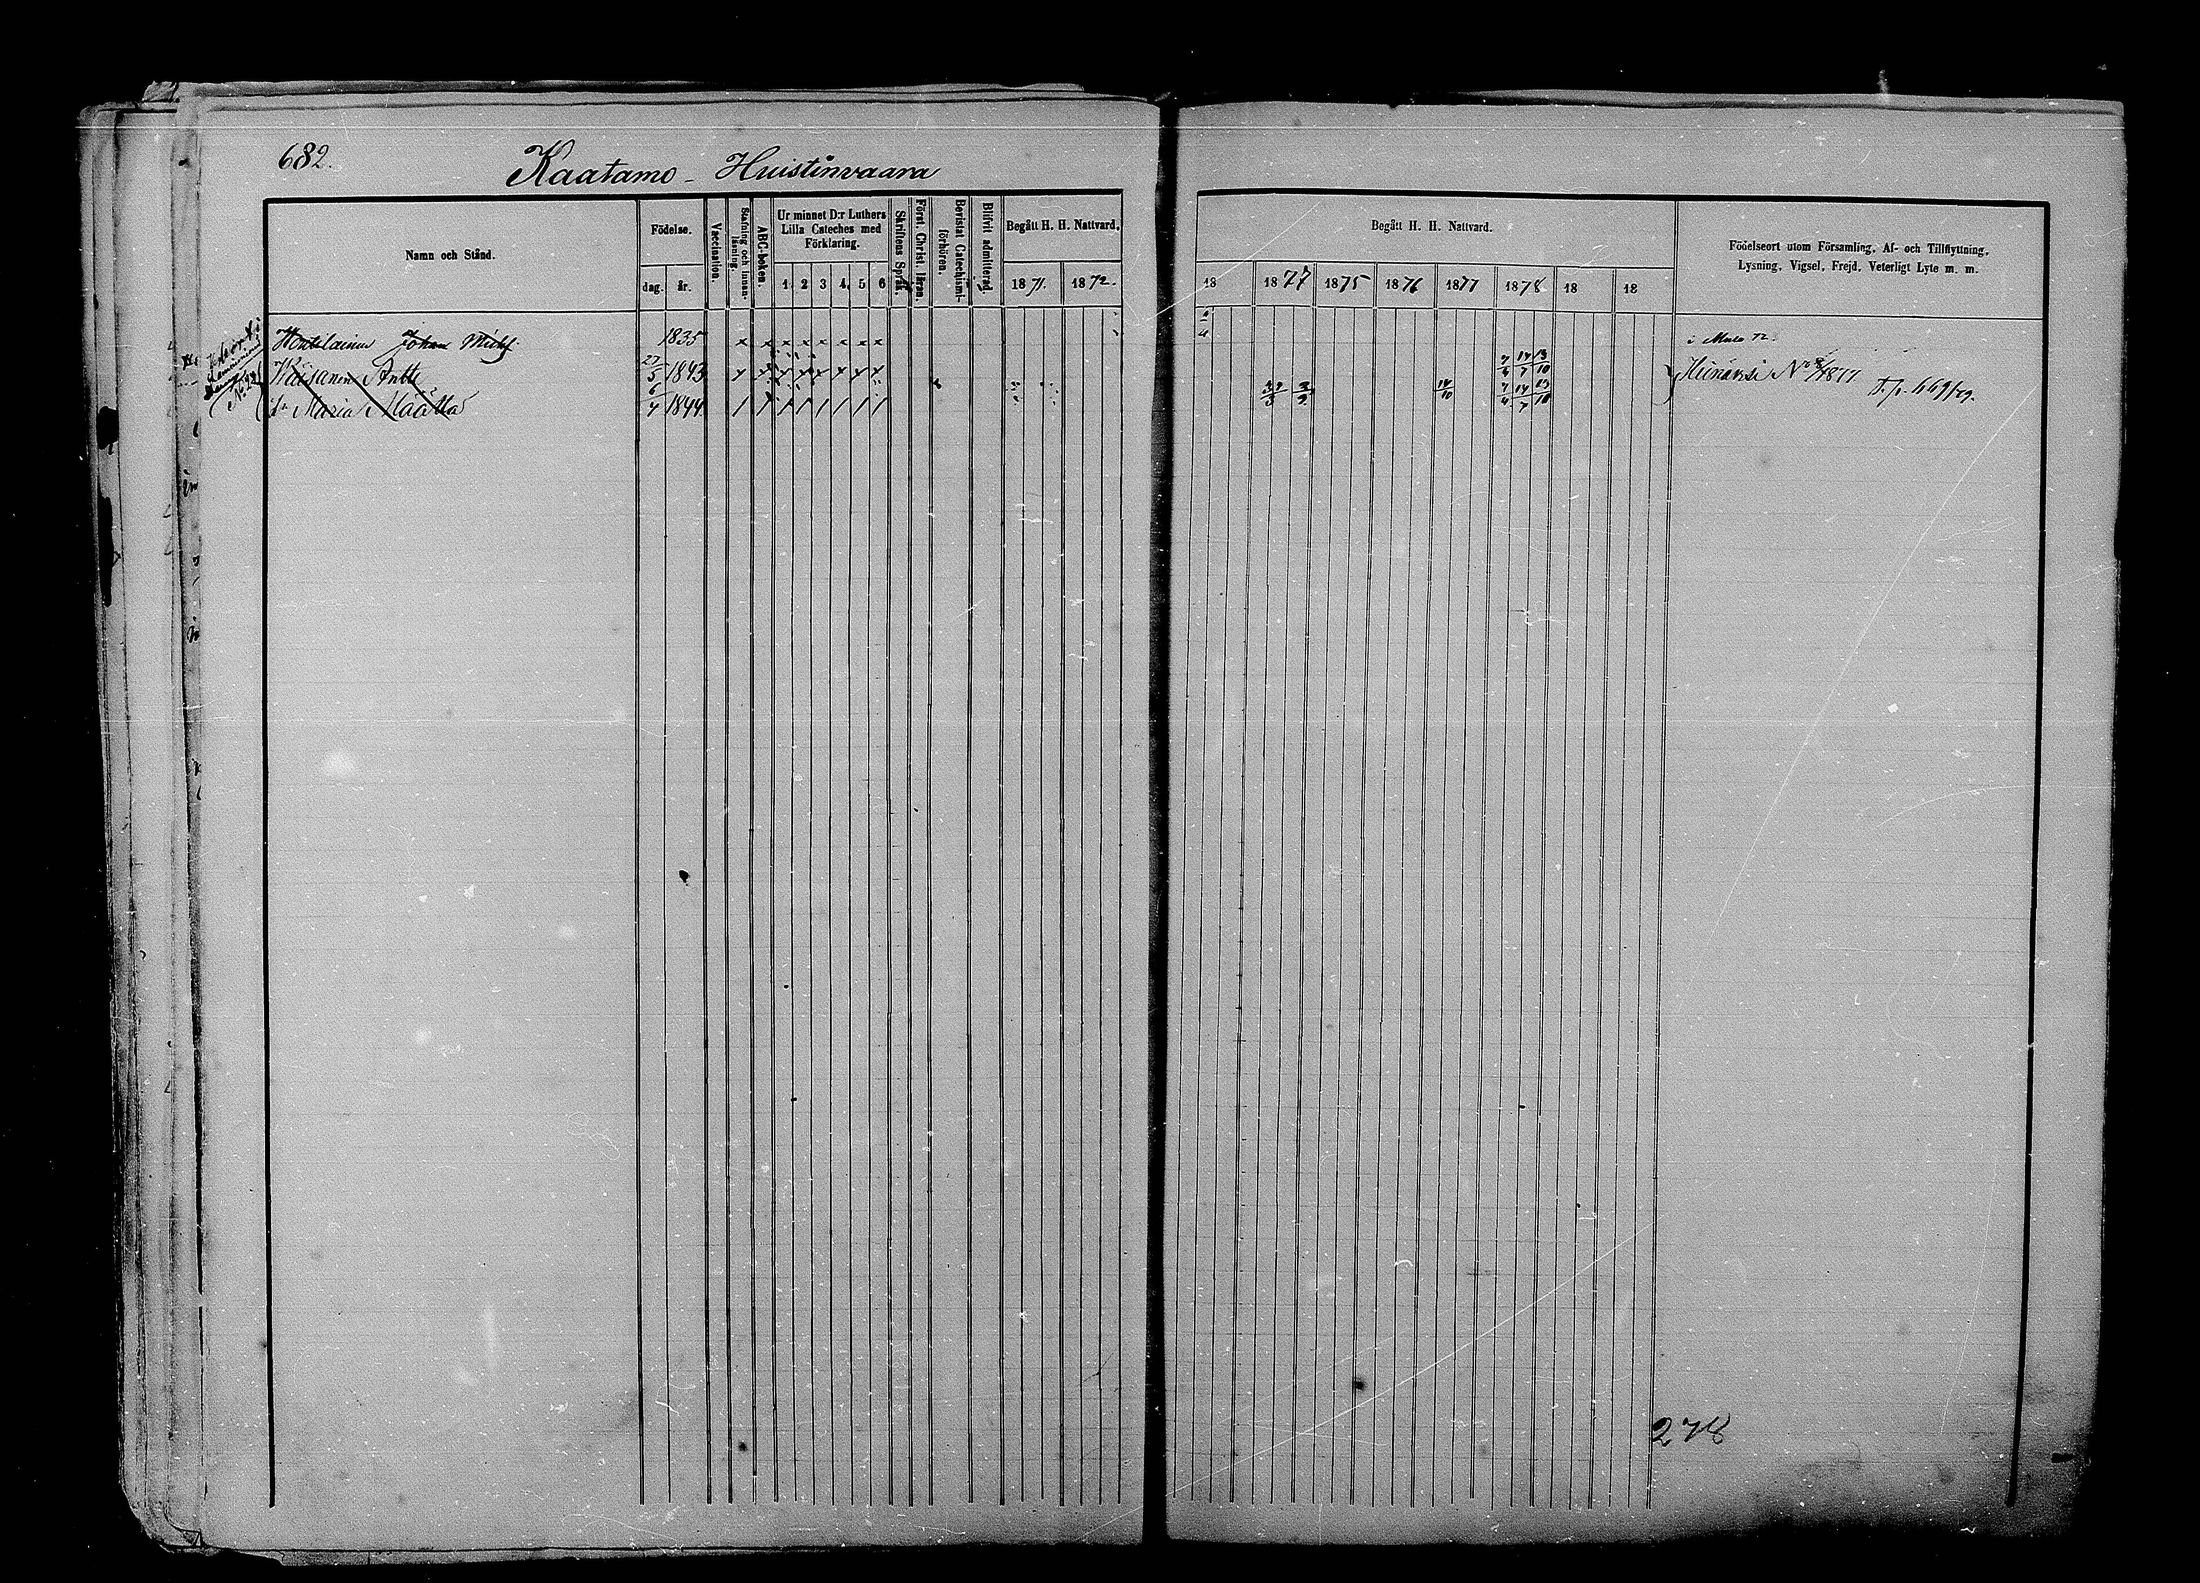 682.
Kaatamo - Huistinvaara
Namn och Stånd.
Födelse.
dag.
år.
Vaccination.
Stafning och innanläsning.
ABC-boken.
Ur minnet D:r Luthers
Lilla Cateches med
Förklaring.
1. 2 3 4. 5 6
Skriftens Språk.
Först. Christ. läran.
Bevistat Catechismiförhören.
Blifvit admitterad.
Begått H. H. Nattvard.
1871. 1872.
Johan Mich. 1835 x x x x x x x x
Väisänen Antti 27/5 1843 x x x x x x x x
Maria Määttä 6/4 1844
Begått H. H. Nattvard.
18 1877 1875 1876 1877 1878 18 18
Födelseort utom Församling, Af- och Tillflyttning,
Lysning, Vigsel, Frejd, Veterligt Lyte m. m.
7/4 14/7 13/10
14/10 7/4 14/7 13/10
278